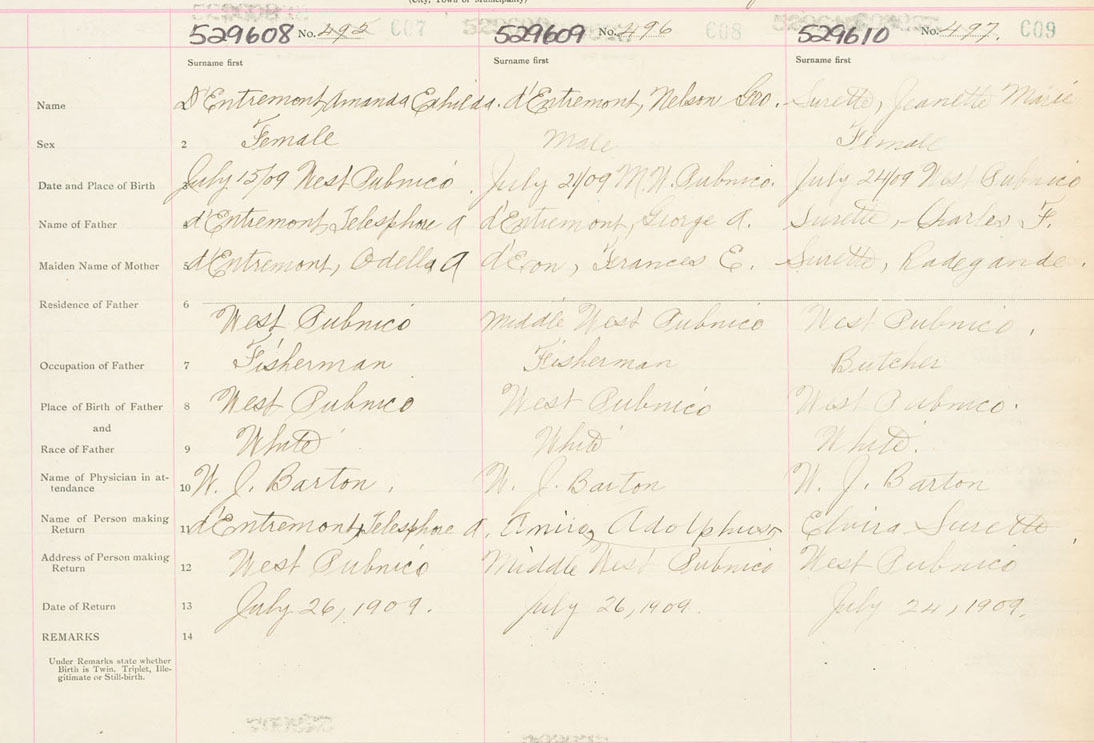 (City, Town or Municipality)
529608 No. 495 C07 529609 No. 496 C08 529610 No. 497. C09
Surname first Surname first Surname first
Name D'Entremont, Amanda Exhilda. d'Entremont, Nelson Geo. Surette, Jeanette Marie
Sex 2 Female Male Female
Date and Place of Birth 3 July 15/09 West Pubnico. July 21/09 M.W. Pubnico. July 24/09 West Pubnico
Name of Father d'Entremont, Telesphore A d'Entremont, George A. Surette, - Charles F.
Maiden Name of Mother 5 d'Entremont, Odella A d'Eon, Frances E. Surette, Radegande.
Residence of Father 6
West Pubnico Middle West Pubnico West Pubnico.
Occupation of Father 7 Fisherman Fisherman Butcher
Place of Birth of Father 8 West Pubnico West Pubnico West Pubnico.
and
Race of Father 9 White White White.
Name of Physician in at-
tendance 10 W. J. Barton. W. J. Barton W. J. Barton
Name of Person making
Return 11 d'Entremont, Telesphore A. Amiro, Adolphus Elvira Surette
Address of Person making
Return 12 West Pubnico Middle West Pubnico West Pubnico
Date of Return 13 July 26, 1909. July 26, 1909. July 24, 1909.
REMARKS 14
Under Remarks state whether
Birth is Twin, Triplet, Ille-
gitimate or Still-birth.